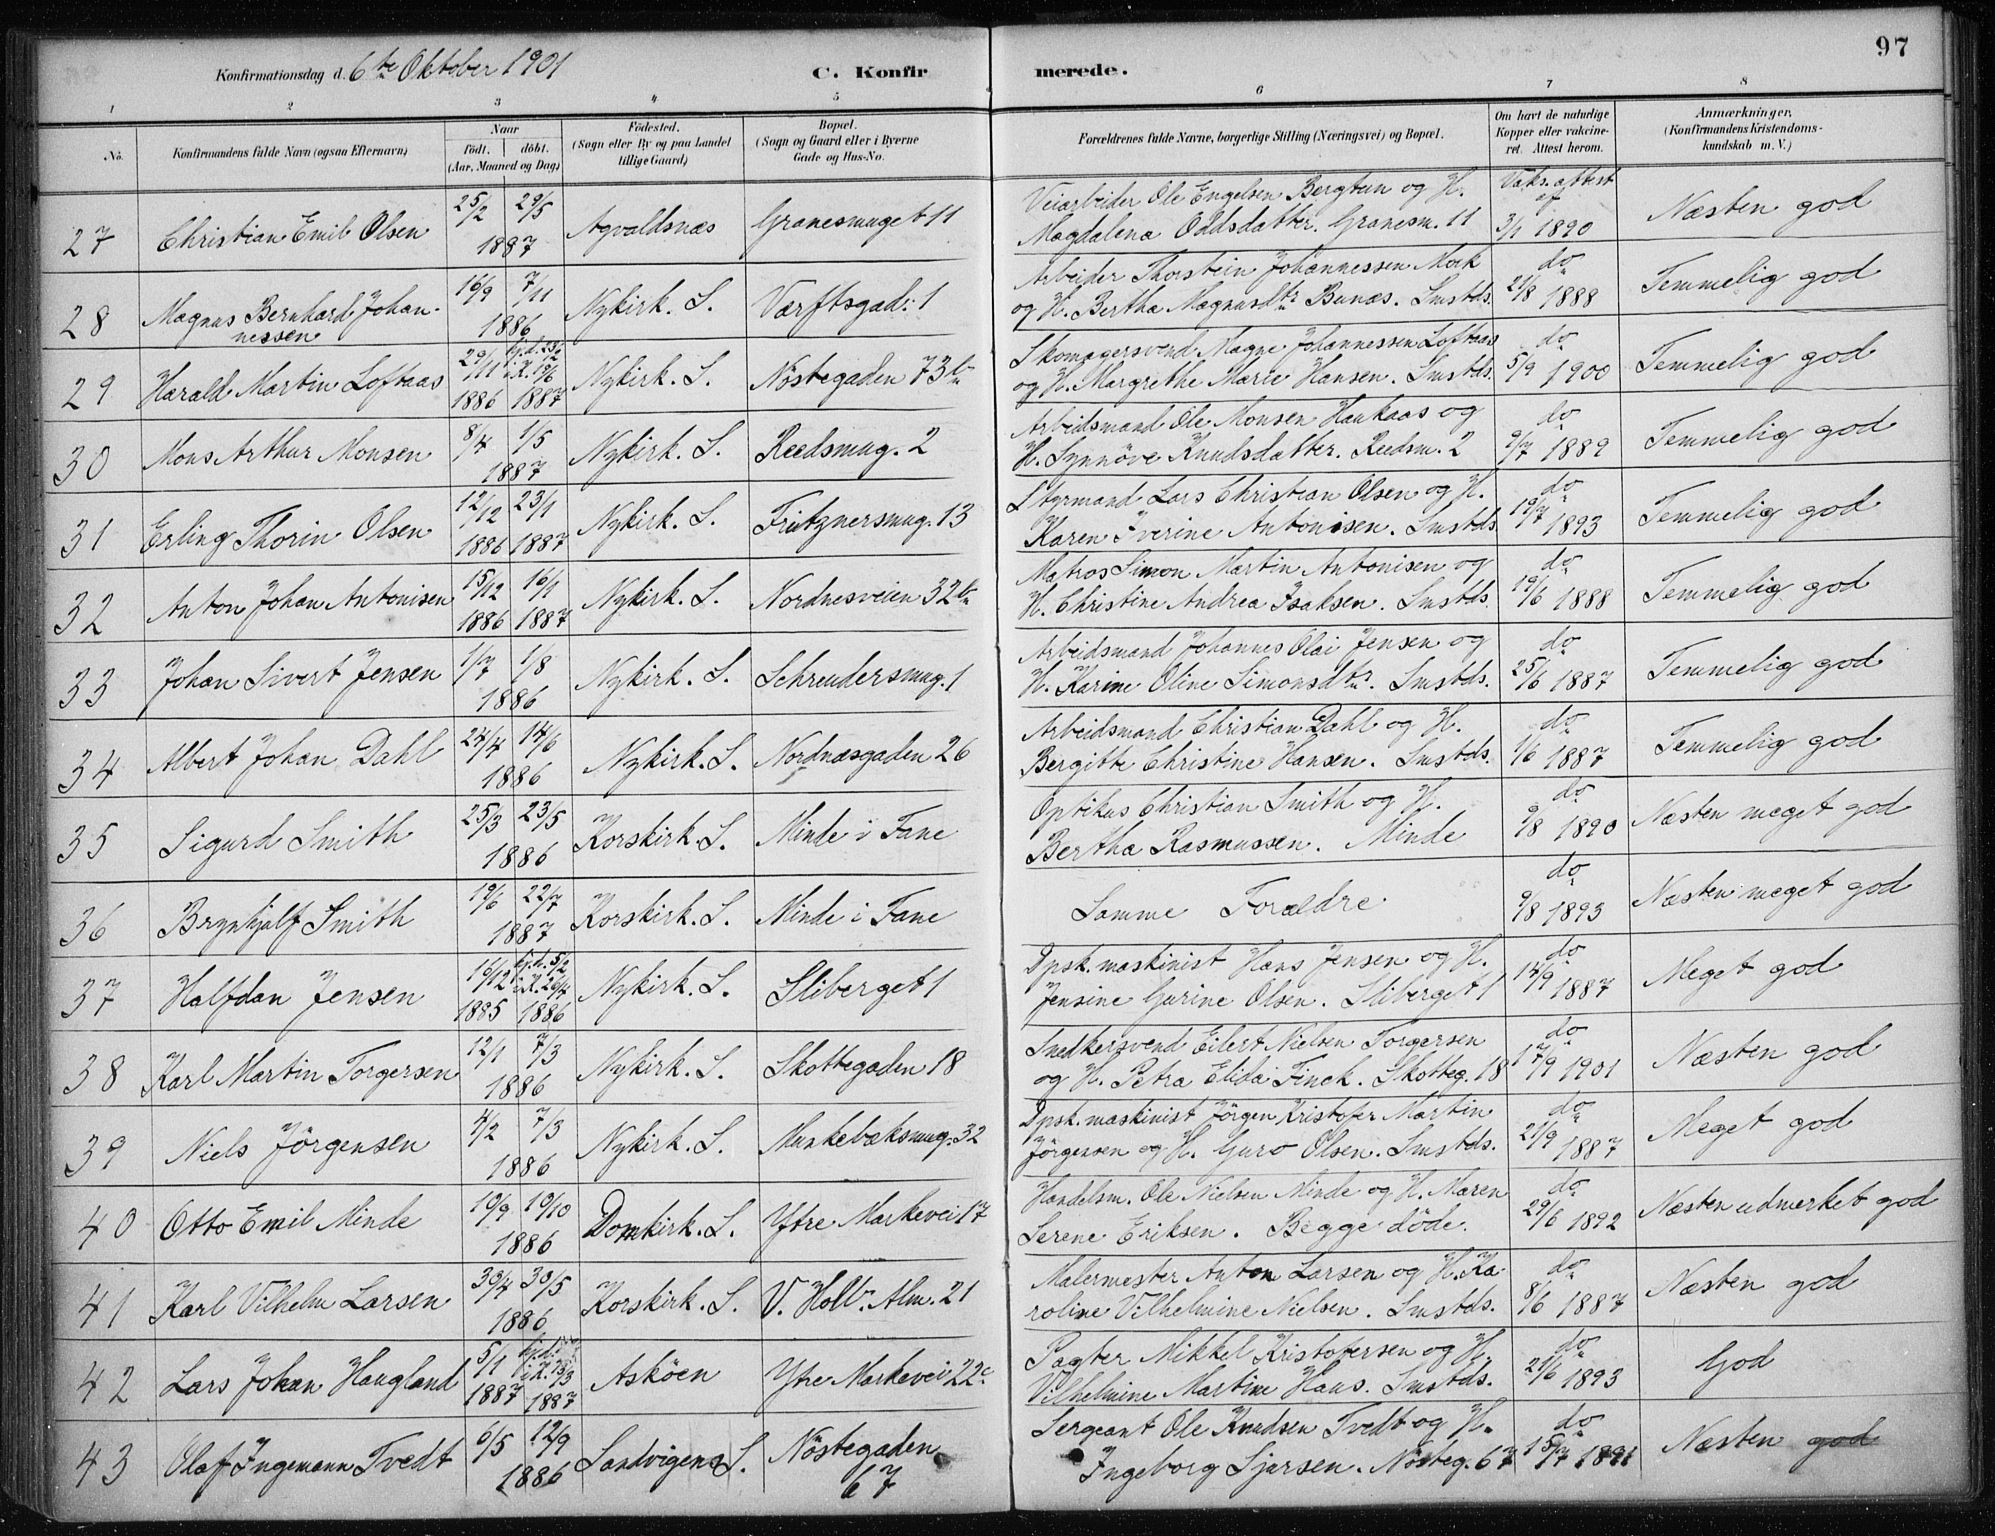 97
Konfirmationsdag d. 6te Oktober 1901
C. Konfir merede.
1 2 3 4 5 6 7 8
No.
Konfirmandens fulde Navn (ogsaa Efternavn)
Naar
Födt. döbt.
(Aar, Maaned og Dag)
Födested.
(Sogn eller By og paa Landet
tillige Gaard)
Bopæl.
(Sogn og Gaard eller i Byerne
Gade og Hus-No.
Forældrenes fulde Navne, borgerlige Stilling (Næringsvei) og Bopæl.
Om havt de naturlige
Kopper eller vakcine-
ret. Attest herom.
Anmærkninger.
(Konfirmandens Kristendoms-
kundskab m. V.)
27 Christian Emil Olsen 25/2 29/5 1887 Agvaldsnæs Granesmuget 11
Veiarbeider Ole Engelsen Bergtun og H.
Magdalena Oddsdatter. Granesm. 11
Vaks. attest af 3/1 1890 Næsten god
28 Magnus Bernhard Johan-
nessen 16/9 7/11 1886 Nykirk. S. Værftsgad: 1
Arbeider Thorstein Johannessen Mork
og H. Bertha Magnusdtr Bunæs. Smstds.
do 21/8 1888 Temmelig god
29 Harald Martin Loftaas 29/11 1886 hj.d. 23/2 i K. 19/6 1887 Nykirk. S. Nöstegaden 73b
Skomagersvend Magne Johannessen Loftaas
og H. Margrethe Marie Hansen. Smstds.
do 5/9 1900 Temmelig god
30 Mons Arthur Monsen 8/4 1/5 1887 Nykirk. S. Reedsmug. 2
Arbeidsmand Ole Monsen Haukaas og
H. Synnöve Knudsdatter. Reedsm. 2
do 9/7 1889 Temmelig god
31 Erling Thorin Olsen 12/12 1886 23/1 1887 Nykirk. S. Fritznersmug. 13
Styrmand Lars Christian Olsen og H.
Karen Iverine Antonisen. Smstds
do 19/7 1893 Temmelig god
32 Anton Johan Antonisen 15/12 1886 16/1 1887 Nykirk. S. Nordnesveien 32b
Matros Simon Martin Antonisen og
H. Christine Andrea Isaksen. Smstds.
do 19/6 1888 Temmelig god
33 Johan Sivert Jensen 1/7 1/8 1886 Nykirk. S. Schreudersmug. 1
Arbeidsmand Johannes Olai Jensen og
H. Karine Oline Simonsdtr. Smstds.
do 25/6 1887 Temmelig god
34 Albert Johan Dahl 24/4 14/6 1886 Nykirk. S. Nordnæsgaden 26
Arbeidsmand Christian Dahl og H.
Bergitte Christine Hansen. Smstds.
do 1/6 1887 Temmelig god
35 Sigurd Smith 25/3 23/5 1886 Korskirk. S. Minde i Fane
Optikus Christian Smith og H.
Bertha Rasmussen. Minde
do 9/8 1890 Næsten meget god
36 Brynhjolf Smith 19/6 22/7 1887 Korskirk. S. Minde i Fane
Samme Forældre
do 9/8 1893 Næsten meget god
37 Halfdan Jensen 16/12 1885 hj.d. 5/2 i K. 26/4 1886 Nykirk. S. Sliberget 1
Dpsk. maskinist Hans Jensen og H.
Jensine Gurine Olsen. Sliberget 1
do 14/9 1887 Meget god
38 Karl Martin Torgersen 12/1 7/3 1886 Nykirk. S. Skottegaden 18
Snedkersvend Eilert Nielsen Torgersen
og H. Petra Elida Finck. Skotteg. 18
do 17/9 1901 Næsten god
39 Niels Jörgensen 4/2 7/3 1886 Nykirk. S. Muskebæksmug. 32
Dpsk. maskinist Jörgen Kristofer Martin
Jörgensen og H. Guro Olsen. Smstds.
do 21/9 1887 Meget god
40 Otto Emil Minde 19/9 19/10 1886 Domkirk. S. Ytre Markevei 17
Handelsm. Ole Nielsen Minde og H. Maren
Serene Eriksen. Begge döde.
do 29/6 1892 Næsten udmerket god
41 Karl Vilhelm Larsen 30/4 30/5 1886 Korskirk. S. V. Holb. Alm. 21
Malermester Anton Larsen og H. Ka-
roline Vilhelmine Nielsen. Smstds.
do 8/6 1887 Næsten god
42 Lars Johan Haugland 5/1 1887 hj.d. i K. 13/3 1887 Asköen Ytre Markevei 22c
Pagter Mikkel Kristofersen og H.
Vilhelmine Martine Haus. Smstds.
do 21/6 1893 God
43 Olaf Ingemann Tvedt 6/5 12/9 1886 Sandvigens S. Nöstegaden
67
Sergeant Ole Knudsen Tvedt og H.
Ingeborg Sjursen. Nösteg. 67
do 15/7 1891 Næsten god